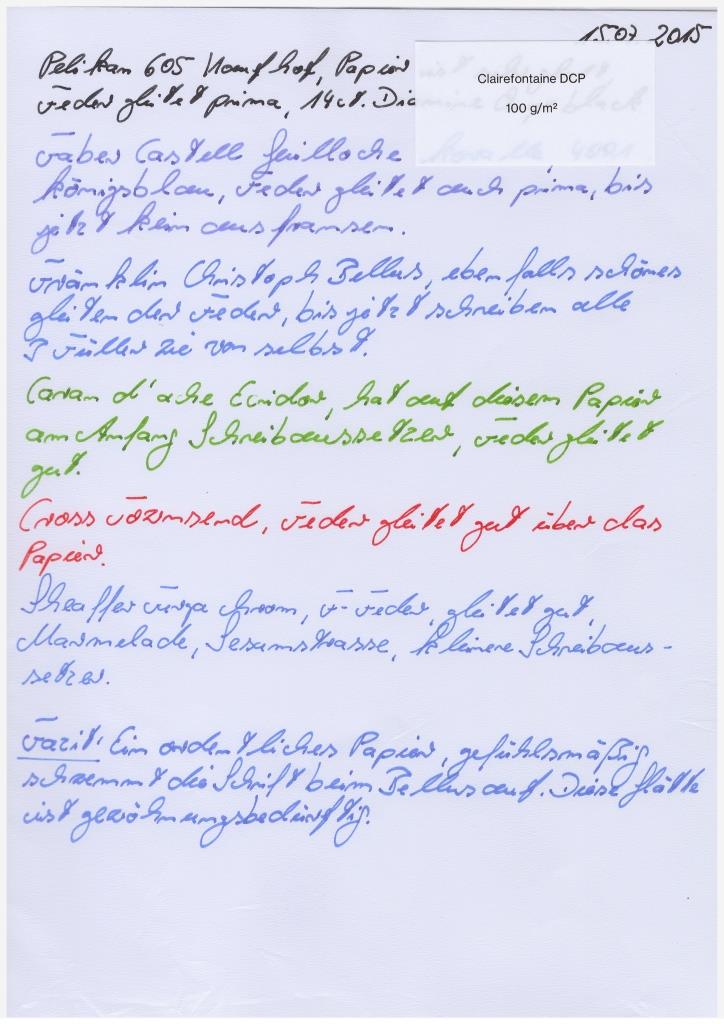 15.07 2015
Pelikan 605 Humfhof, Papier ist sehr glatt,
Feder gleitet prima, 14ct. Diamine Onyx black
Clairefontaine DCP
100 g/m²
Faber Castell Guilloche 4001
königsblau, Feder gleitet auch prima, bis
jetzt kein ausfransen.
Franklin Christoph Bellus, ebenfalls schönes
gleiten der Feder, bis jetzt schreiben alle
3 Füller wie von selbst.
Caran d'ache Ecridor, hat auf diesem Papier
am Anfang Schreibaussetzer, Feder gleitet
gut.
Cross Townsend, Feder gleitet gut über das
Papier.
Sheaffer chrom, F-Feder, gleitet gut,
Marmelade, Sesamstrasse, kleinere Schreibaus-
setzer.
Fazit: Ein ordentliches Papier, gefühlsmäßig
schwemmt die Schrift beim Bellus auf. Diese Glätte
ist gewöhnungsbedürftig.